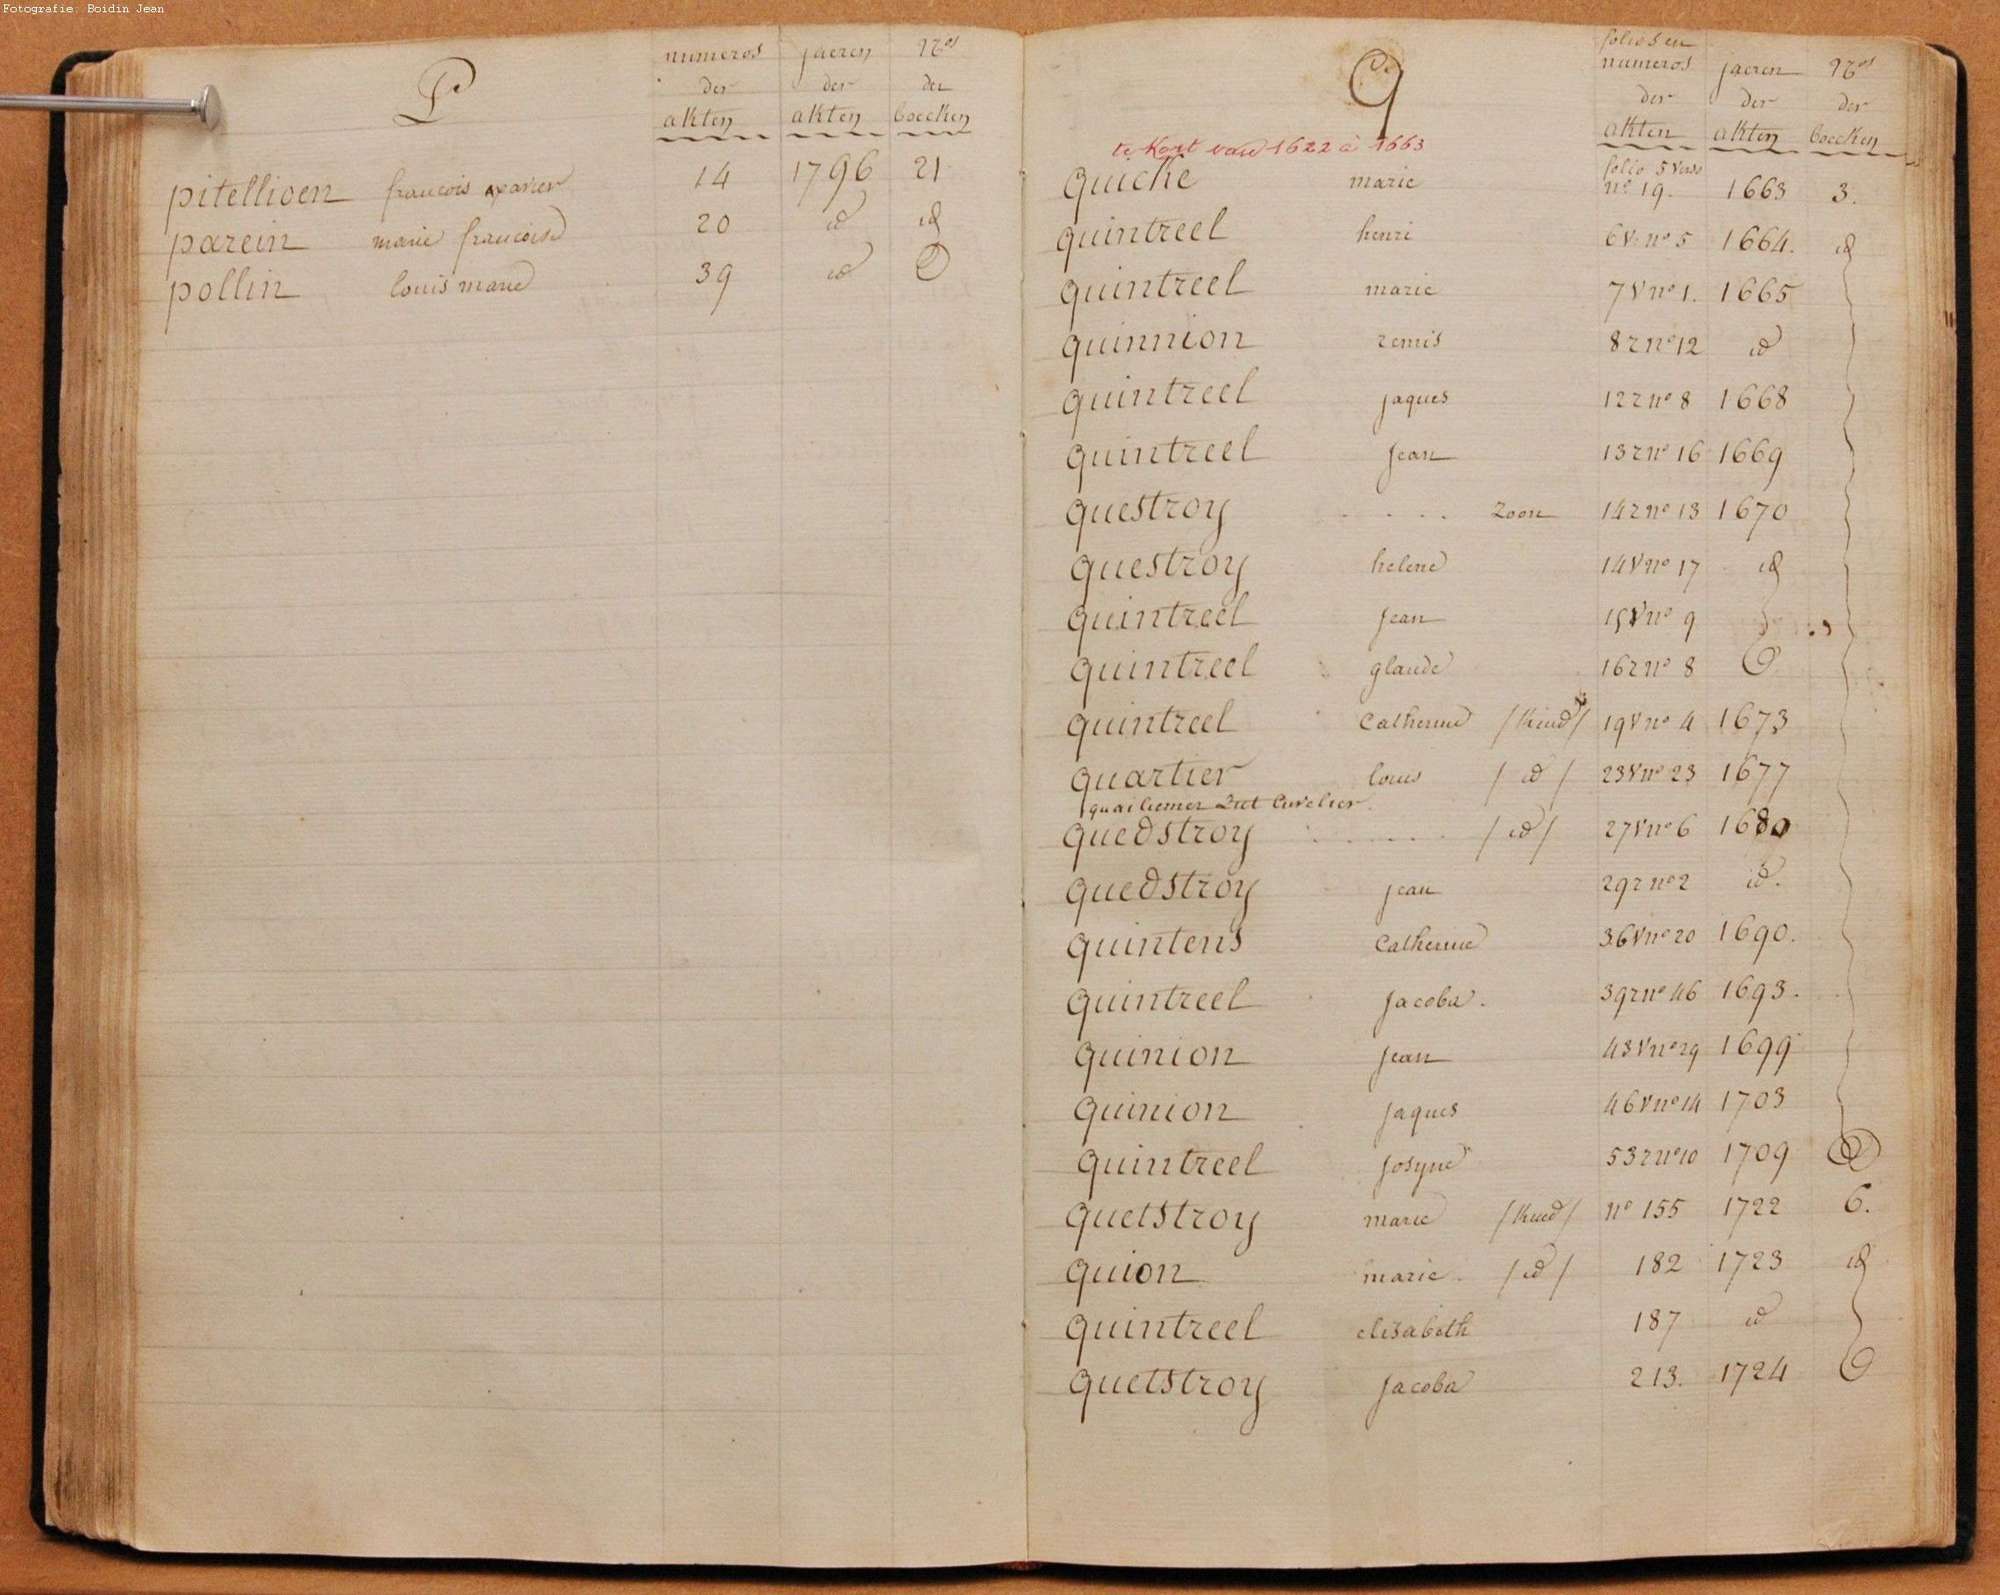 Fotografie: Boidin Jean
P
numeros jaeren Nos
der der der
akten akten boecken
pitellioen francois xavier 14 1796 21
parein marie francoise 20 id id
pollin louis marie 39 id
Q
folios en
numeros jaeren Nos
der der der
akten akten boecken
te kort van 1622 à 1663
quiche marie folio 5 verso no 19. 1663 3.
quintreel henri 6 v. no 5 1664. id
quintreel marie 7 v no 1. 1665
quinnion remis 8 r no 12 id
quintreel jaques 12 r no 8 1668
quintreel jean 13 r no 16 1669
questroy ..... zoon 14 r no 13 1670
questroy helene 14 v no 17 id
quintreel jean 15 v no 9
quintreel glaude 16 r no 8
quintreel Catherine /kind/ 19 v no 4 1673
quartier louis / id / 23 v no 23 1677
Cuvelier.
quedstroy ..... / id / 27 v no 6 1680
quedstroy jean 29 r no 2 id.
quintens Catherine 36 v no 20 1690.
quintreel jacoba. 39 r no 46 1693.
quinion jean 43 v no 29 1699
quinion jaques 46 v no 14 1703
quintreel josyne 53 r no 10 1709
quetstroy marie /kind/ no 155 1722 6.
quion marie / id / 182 1723 id
quintreel elisabeth 187 id
quetstroy jacoba 213. 1724